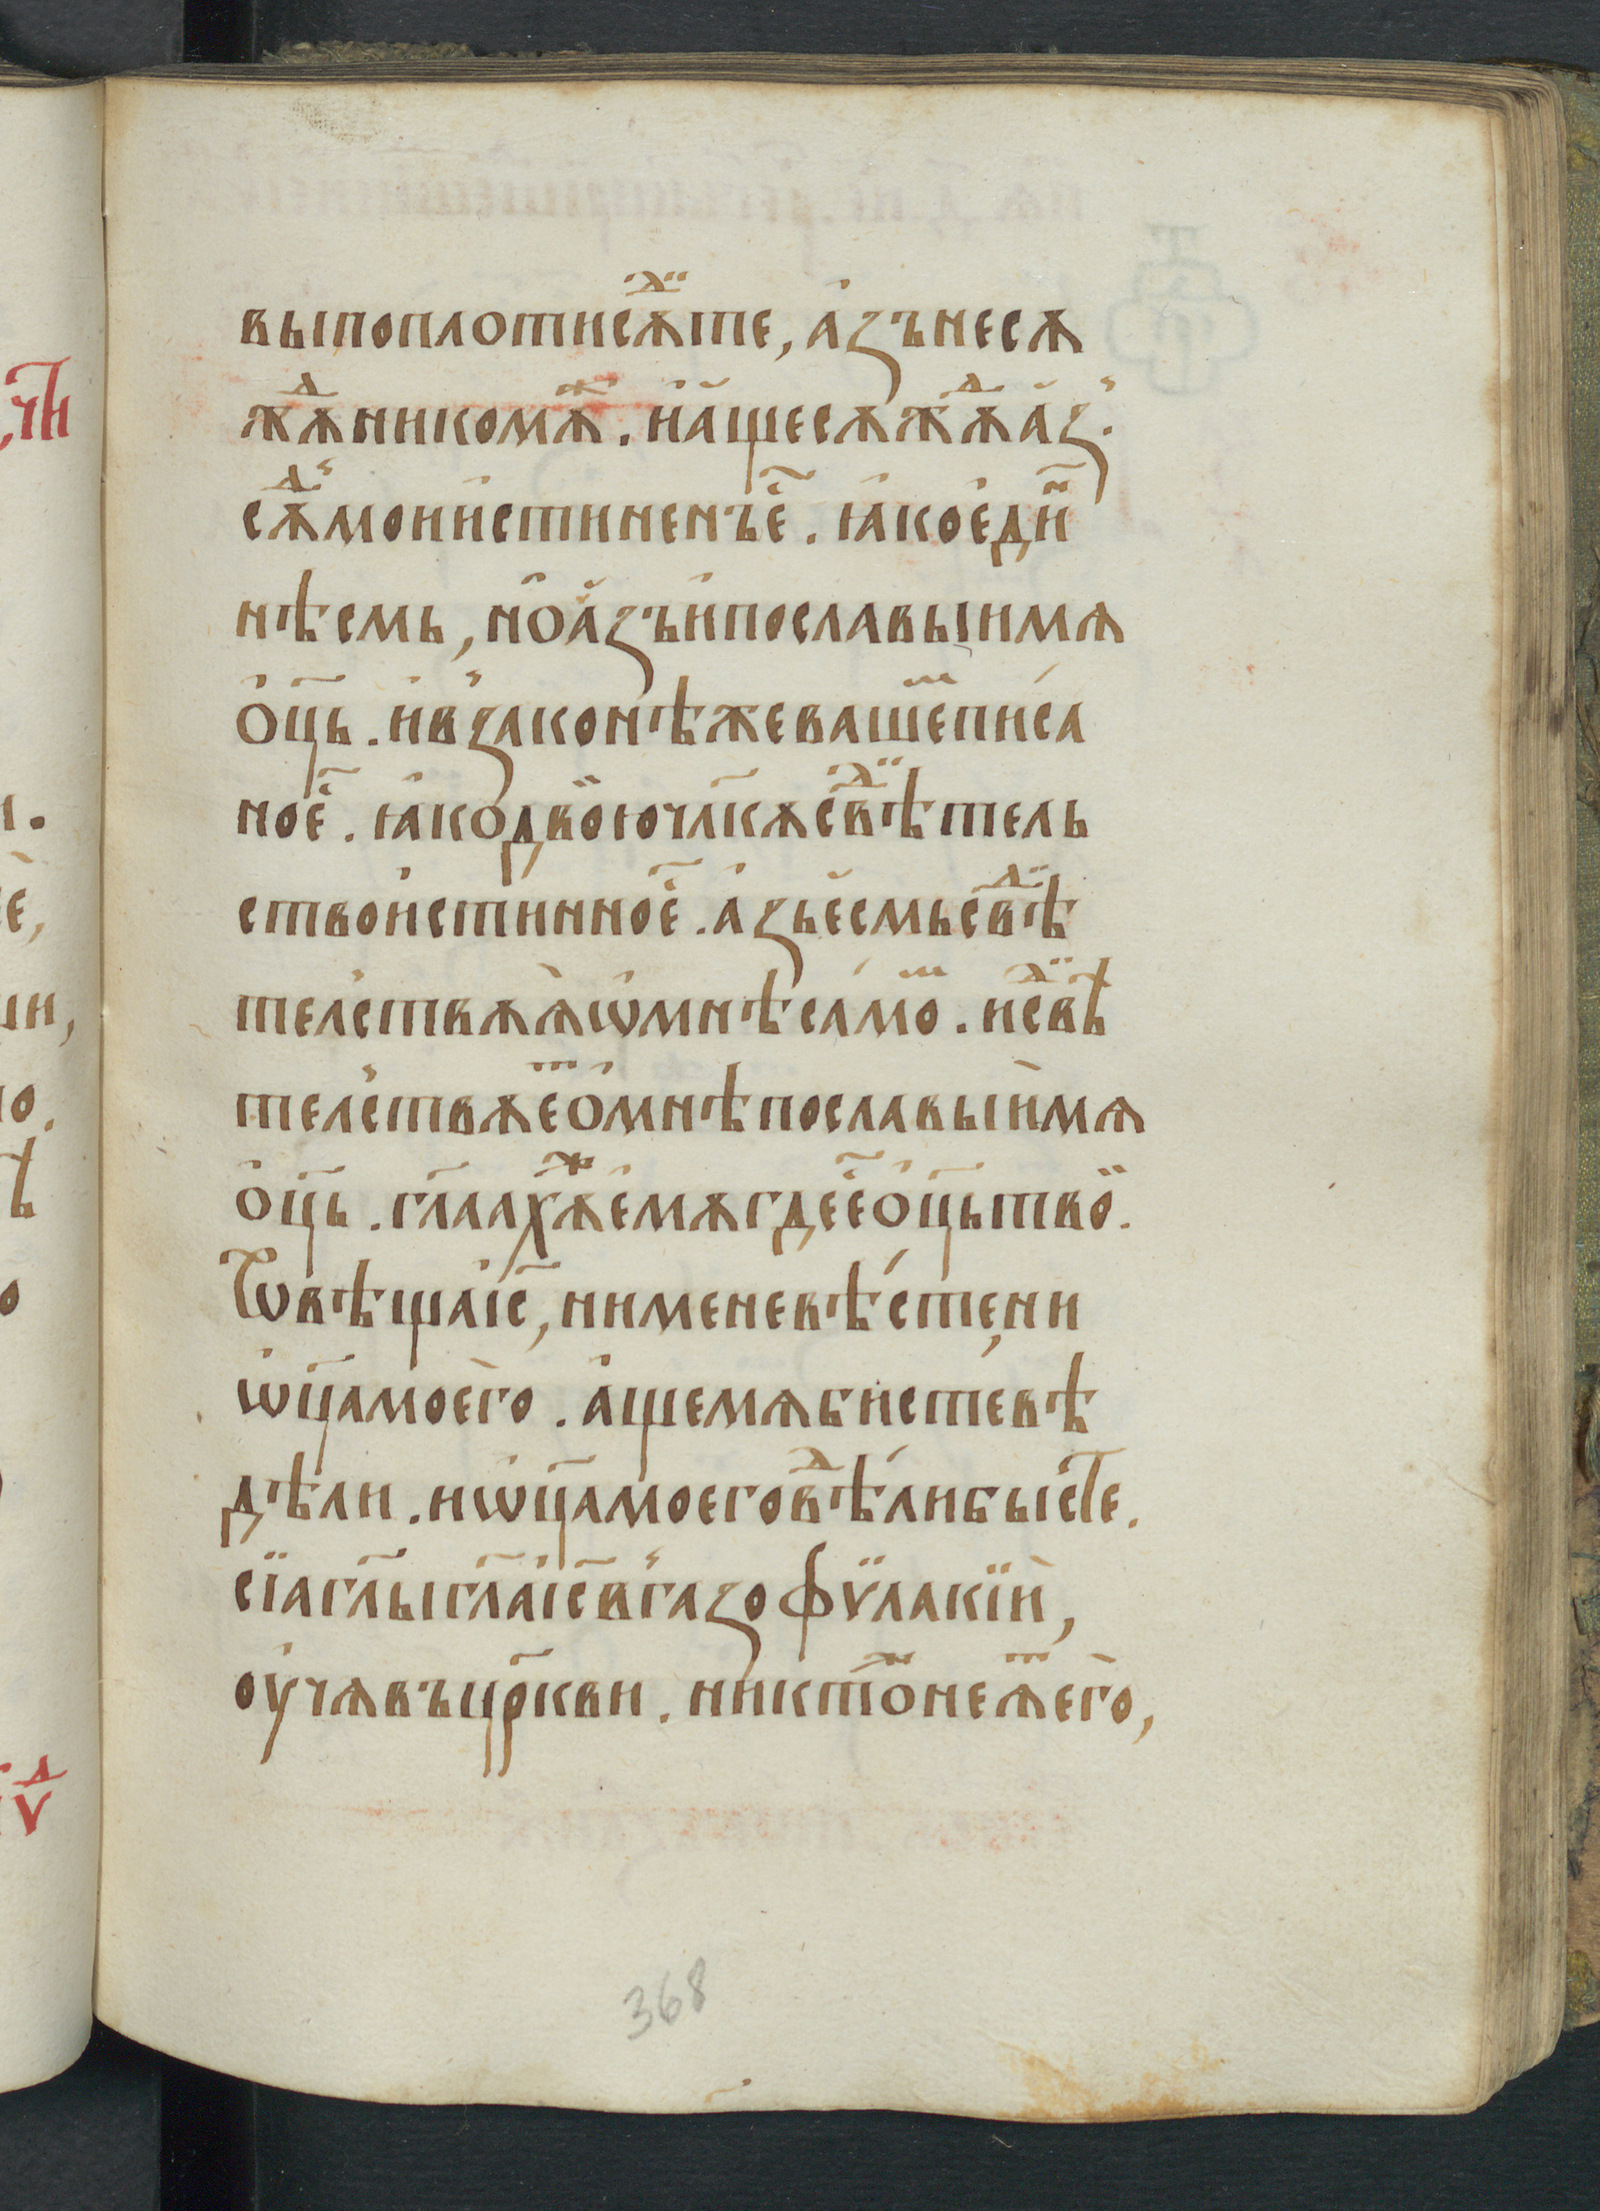 выпоплотнисѫⷣ҇те, а҆зънесѫ
жѫⷣникомѫⷤ. и҆а҆щесѫжѫⷣа҆з̾.
сѫⷣ҇мои҆и҆стиненъе҆̃. ꙗ҆коедїⷩ҇
нѣсмь, но҆а҆зъи҆пославыимѧ
о҆ц҃ь. и҆в̾законѣжевашⷲеписа
ное҆̃. ꙗ҆кодвою̈чл҃кѫсвⷣ҇ѣтель
ствои҆стинное҆̃. а҆зъе҆смьсвⷣ҇ѣ
тел̾ствѫѧѡ҆мнѣсамоⷲ. и҆свⷣ҇ѣ
тел̾ствѫеⷮо҆мнѣпославыи҆мѧ
о҆ц҃ь. гл҃аахѫⷤе҆мѫгдее҆̃о҆ц҃ьтвӧ.
Ѿвѣщаі҆с҃, нименевѣсте, ни
ѡ҆ц҃амоего. а҆щемѧбистевѣ
дѣли. иѡ҆ц҃амоеговⷣѣлибыстⷭ҇е.
сїагл҃ыгл҃аі҆с҃в̾газоѳѵлакїи,
оу҆чѧвъцр҃кви. никтоⷤнеѧⷮего,
368